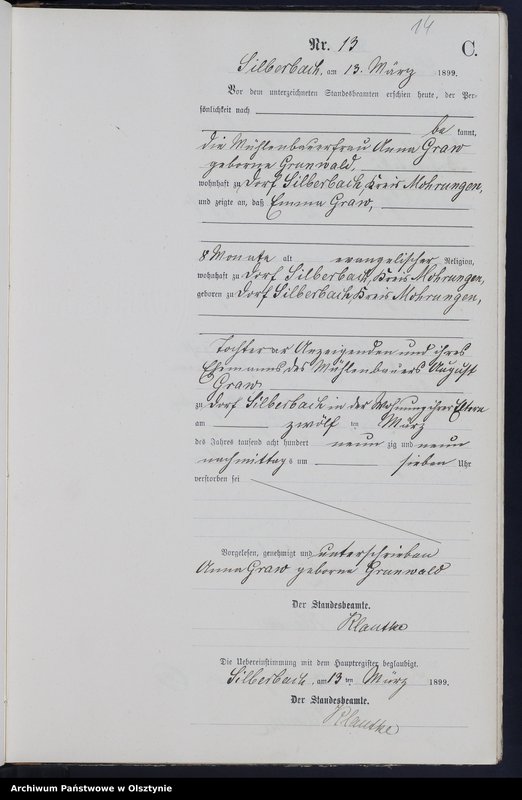 14
Nr. 13
C.
Silberbach, am 13. März 1899.
Vor dem unterzeichneten Standesbeamten erschien heute, der Per-
sönlichkeit nach
be kannt,
die Mühlenbauerfrau Anna Graw
geborene Grunwald,
wohnhaft zu Dorf Silberbach, Kreis Mohrungen,
und zeigte an, daß Emma Graw,
8 Monate alt evangelischer Religion,
wohnhaft zu Dorf Silberbach, Kreis Mohrungen,
geboren zu Dorf Silberbach, Kreis Mohrungen,
Tochter der Anzeigenden und ihres
Ehemanns des Mühlenbauers August
Graw
zu Dorf Silberbach in der Wohnung ihrer Eltern
am zwölf ten März
des Jahres tausend acht hundert neun zig und neun
nachmittags um sieben Uhr
verstorben sei
Vorgelesen, genehmigt und unterschrieben
Anna Graw geborene Grunwald
Der Standesbeamte.
Klautke
Die Uebereinstimmung mit dem Hauptregister beglaubigt.
Silberbach, am 13 ten März 1899.
Der Standesbeamte.
Klautke
Archiwum Państwowe w Olsztynie